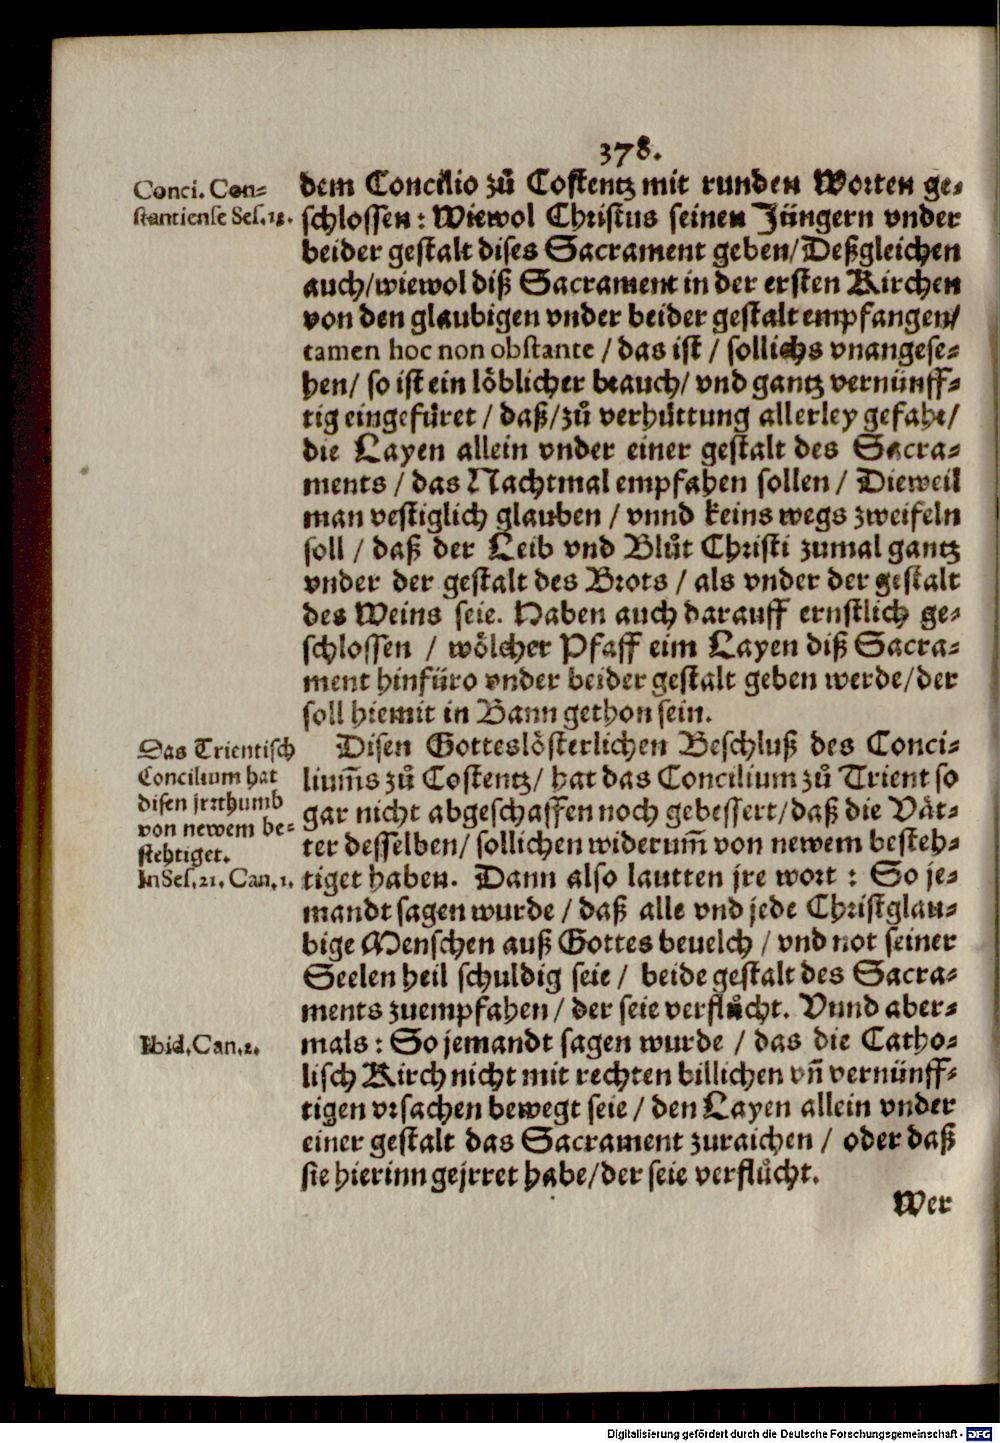 378.
Conci. Con-
stantiense Ses. 13.
dem Concilio zů Costentz mit runden Worten ge-
schlossen: Wiewol Christus seinen Jüngern vnder
beider gestalt dises Sacrament geben/Deßgleichen
auch/wiewol diß Sacrament in der ersten Kirchen
von den glaubigen vnder beider gestalt empfangen/
tamen hoc non obstante / das ist / sollichs vnangese-
hen/ so ist ein löblicher brauch/ vnd gantz vernünff-
tig eingefůret / daß/zů verhüttung allerley gefahr/
die Layen allein vnder einer gestalt des Sacra-
ments / das Nachtmal empfahen sollen / Dieweil
man vestiglich glauben / vnnd keins wegs zweifeln
soll / daß der Leib vnd Blůt Christi zumal gantz
vnder der gestalt des Brots / als vnder der gestalt
des Weins seie. Haben auch darauff ernstlich ge-
schlossen / wölcher Pfaff eim Layen diß Sacra-
ment hinfüro vnder beider gestalt geben werde/der
soll hiemit in Bann gethon sein.
Das Trientisch
Concilium hat
disen jrrthumb
von newem be-
stehtiget.
In Ses. 21. Can. 1.
Disen Gotteslösterlichen Beschluß des Conci-
lium̃s zů Costentz/ hat das Concilium zů Trient so
gar nicht abgeschaffen noch gebessert/daß die Vät-
ter desselben/ sollichen widerum̃ von newem besteh-
tiget haben. Dann also lautten jre wort : So je-
mandt sagen wurde / daß alle vnd jede Christglau-
bige Menschen auß Gottes beuelch / vnd not seiner
Seelen heil schuldig seie / beide gestalt des Sacra-
ments zuempfahen / der seie verflůcht. Vnnd aber-
Ibid. Can. 2.
mals : So jemandt sagen wurde / das die Catho-
lisch Kirch nicht mit rechten billichen vñ vernünff-
tigen vrsachen bewegt seie / den Layen allein vnder
einer gestalt das Sacrament zuraichen / oder daß
sie hierinn gejrret habe/der seie verflůcht.
Wer
Digitalisierung gefördert durch die Deutsche Forschungsgemeinschaft - DFG